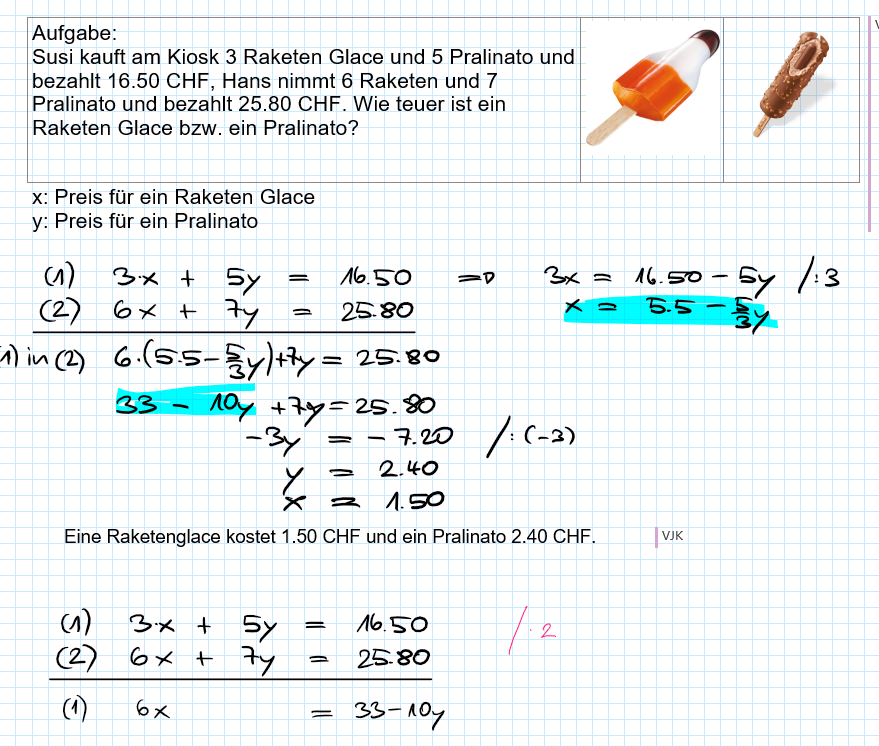 Aufgabe:
Susi kauft am Kiosk 3 Raketen Glace und 5 Pralinato und
bezahlt 16.50 CHF, Hans nimmt 6 Raketen und 7
Pralinato und bezahlt 25.80 CHF. Wie teuer ist ein
Raketen Glace bzw. ein Pralinato?
x: Preis für ein Raketen Glace
y: Preis für ein Pralinato
(1) 3·x + 5y = 16.50 => 3x = 16.50 - 5y /:3
(2) 6x + 7y = 25.80 x = 5.5 - 5/3y
1) in (2) 6·(5.5 - 5/3y) + 7y = 25.80
33 - 10y + 7y = 25.80
-3y = -7.20 /:(-3)
y = 2.40
x = 1.50
Eine Raketenglace kostet 1.50 CHF und ein Pralinato 2.40 CHF. VJK
(1) 3·x + 5y = 16.50 /·2
(2) 6x + 7y = 25.80
(1) 6x = 33-10y